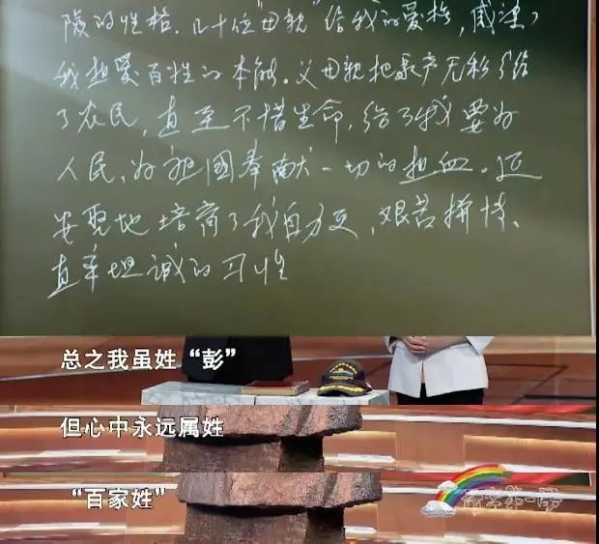 险的性格.几十位“母亲”给我的爱抚,感染了
我热爱百姓的本能.父母亲把家产无私分给
了农民,直至不惜生命,给了我要为
人民、为祖国奉献一切的热血.延
安圣地培育了我自力更,艰苦拼搏、
直率坦诚的习性
总之我虽姓“彭”
但心中永远属姓
“百家姓”
开学第一课